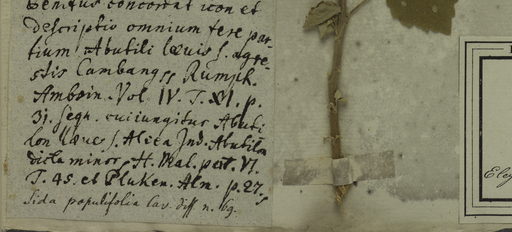 Penitus concordat icon et
descriptio omnium fere par-
tium Abutili lævis s. agre-
stis Cambang ss Rumph.
Amboin. Vol. IV. T. XI. p.
31. seqn. cui iungitur Abuti-
lon læve s. Alcea Ind. Abutilon
dicta minor, H. Mal. part. VI.
T. 45. et Pluken. Alm. p. 27.
Sida populifolia Cav. diss n. 69.